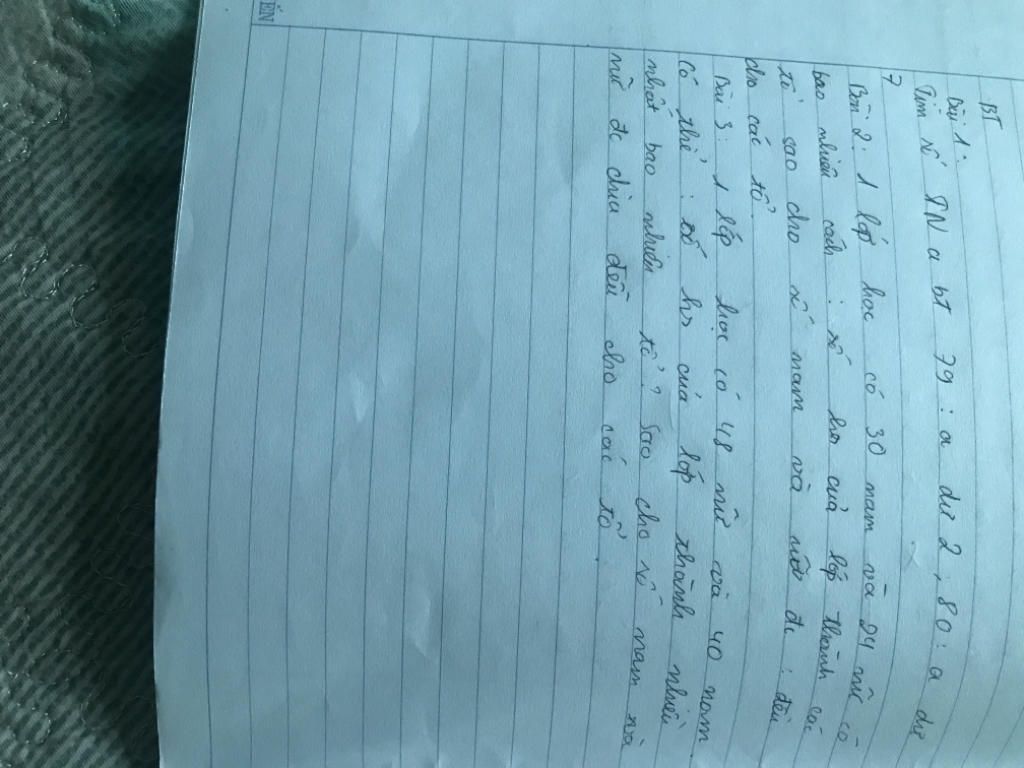 BT
Bài 1:
Tìm số TN a bt 79 : a dư 2, 80 : a dư
7
Bài 2: 1 lớp học có 30 nam và 24 nữ có
bao nhiêu cách : số hs của lớp thành các
tổ sao cho số nam và nữ đc : đều
cho các tổ.
Bài 3: 1 lớp học có 48 nữ và 40 nam
có thể : số hs của lớp thành nhiều
nhất bao nhiêu tổ? sao cho số nam và
nữ đc chia đều cho các tổ.
ẾN